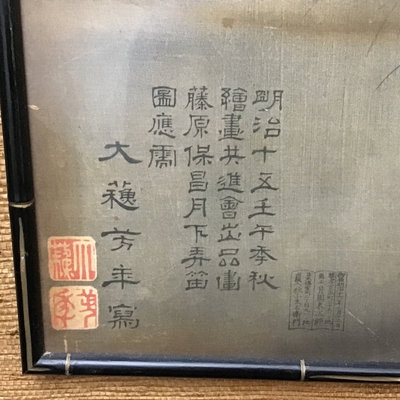 明治十五壬午季秋
繪畫共進會出品畫
藤原保昌月下弄笛
圖應需
大蘇芳年寫
大蘇
芳年